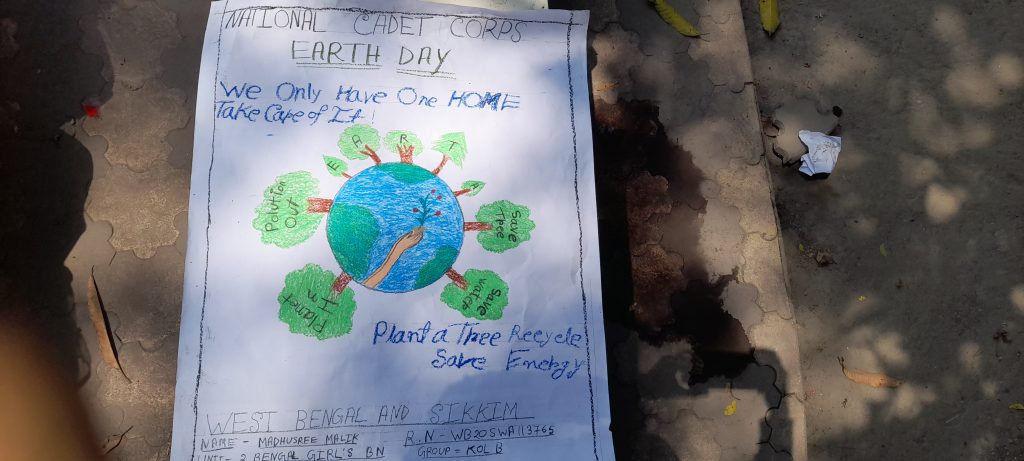 NATIONAL CADET CORPS
EARTH DAY
We Only Have One HOME
Take Care of It!
E A R T H
Polution
Out
Save
Tree
Planet
In
Save
water
Plant a Tree Recycle
Save Energy
WEST BENGAL AND SIKKIM
NAME - MADHUSREE MALIK R.N - WB20SWA113765
UNIT - 2 BENGAL GIRL'S BN GROUP = KOL B